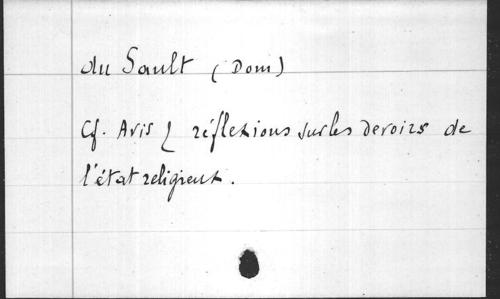 du Sault (Dom)
Cf. Avis & réflexions sur les devoirs de
l'état religieux.